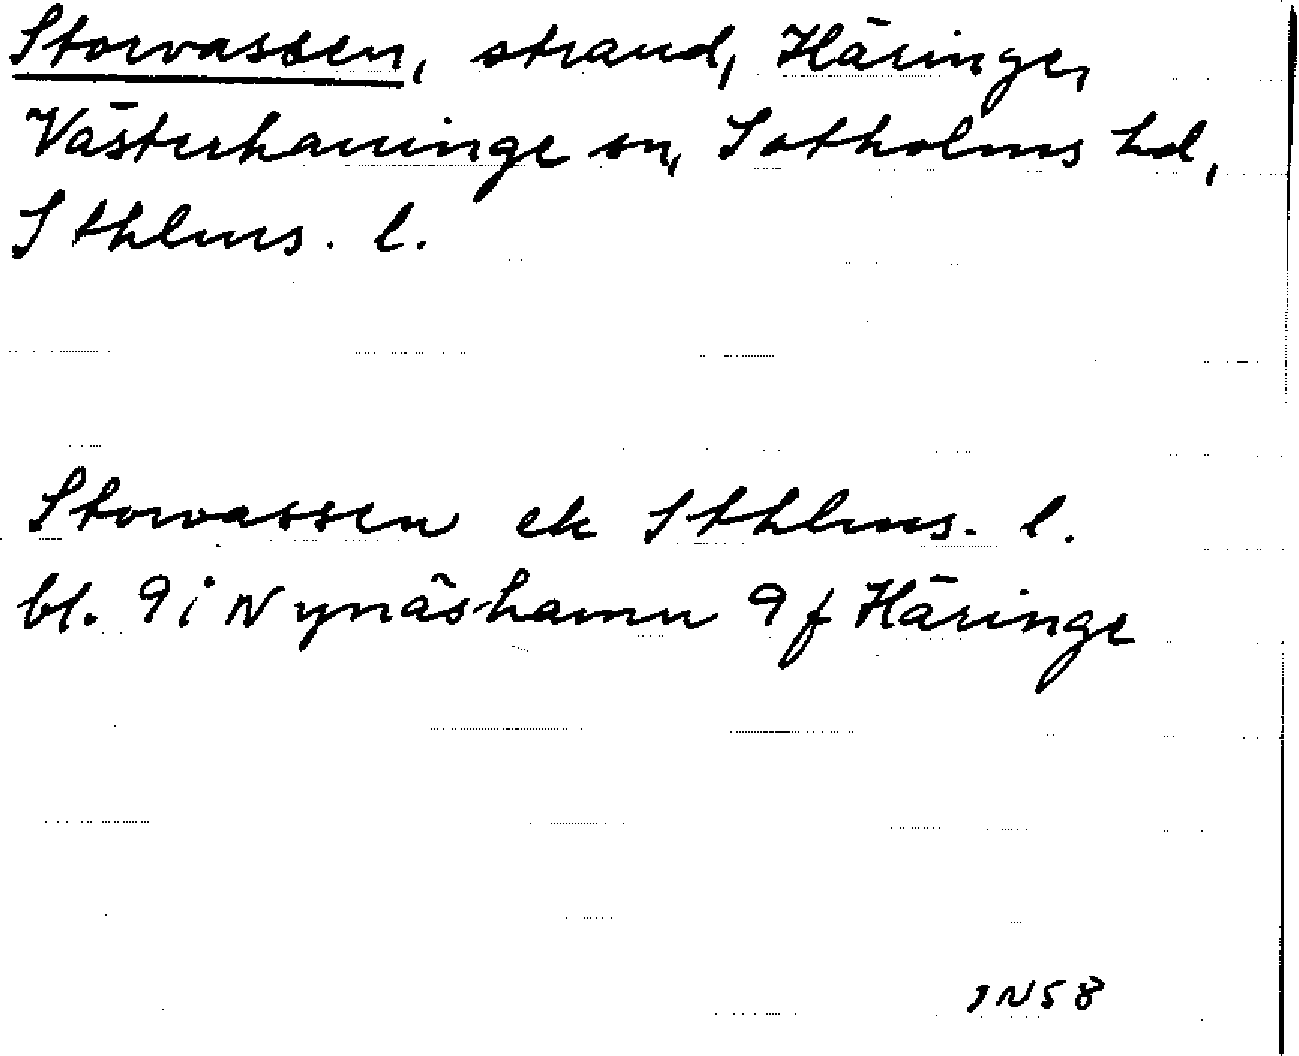 Storvassen, strand, Häringe,
Västerhaninge sn, Sotholms hd,
Sthlms. l.
Storvassen ek Sthlms. l.
bl. 9i Nynäshamn 9f Häringe
IN58